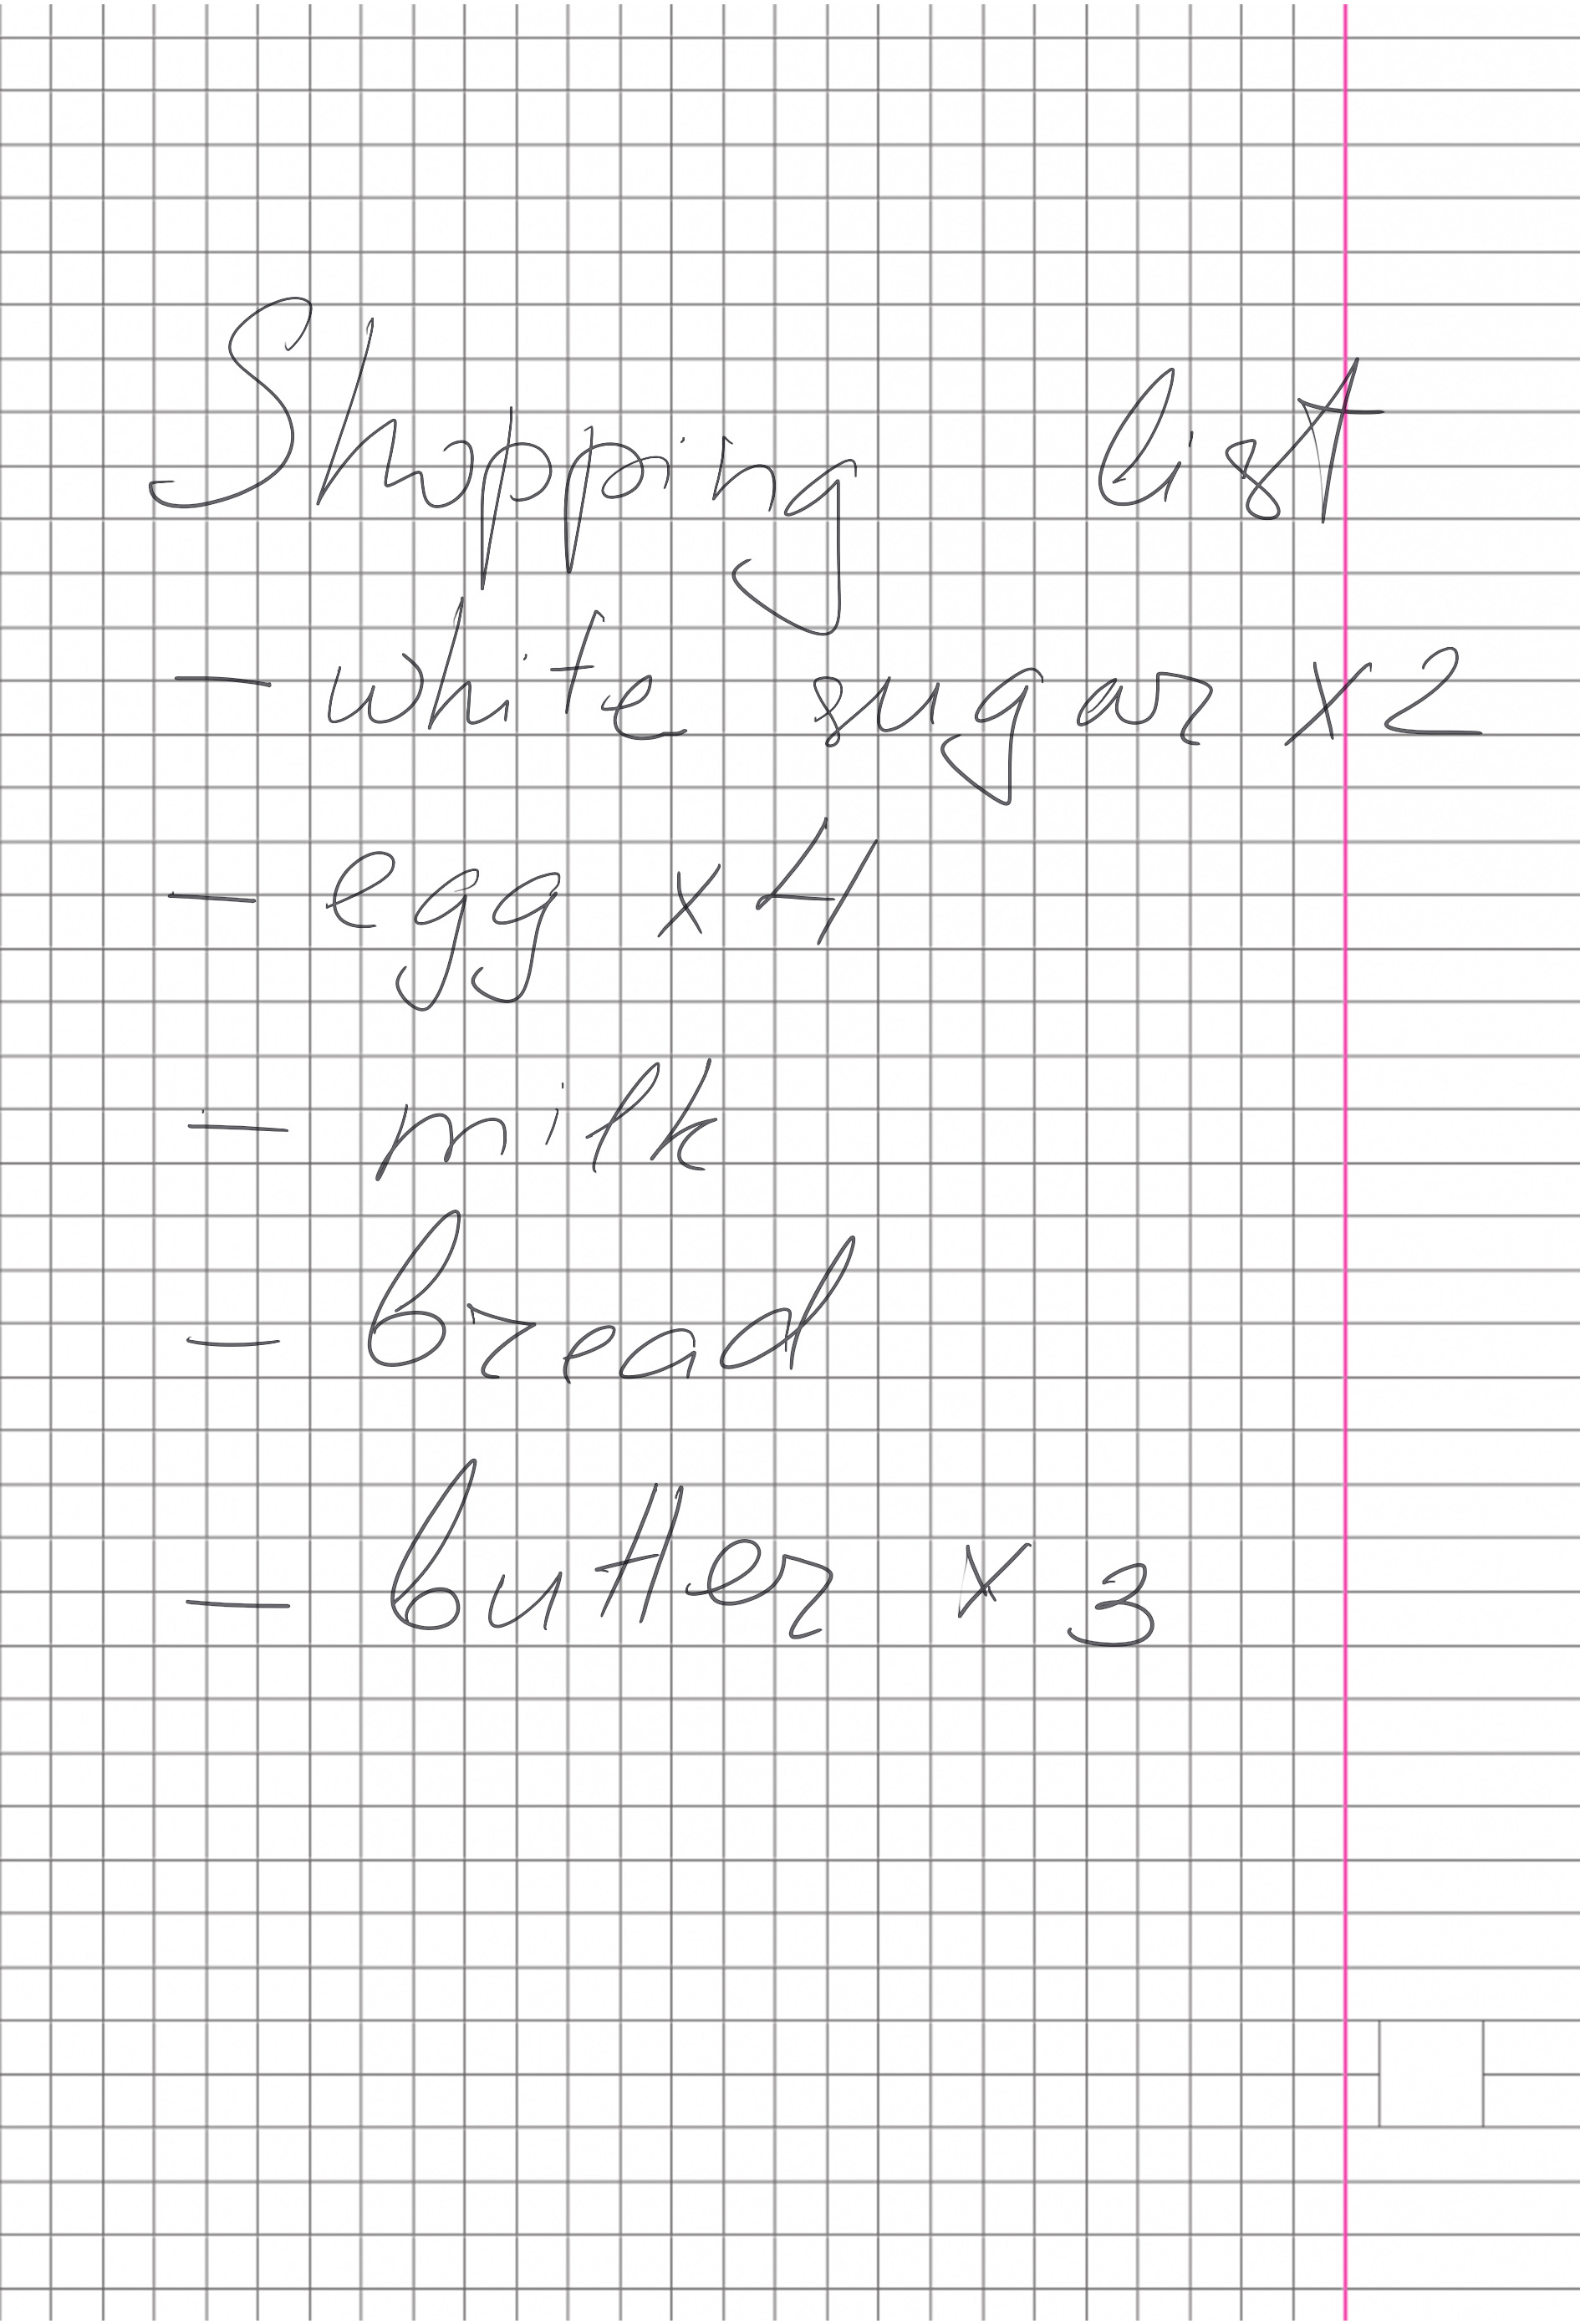 Shopping list
- white sugar x2
- egg x4
- milk
- bread
- butter x 3